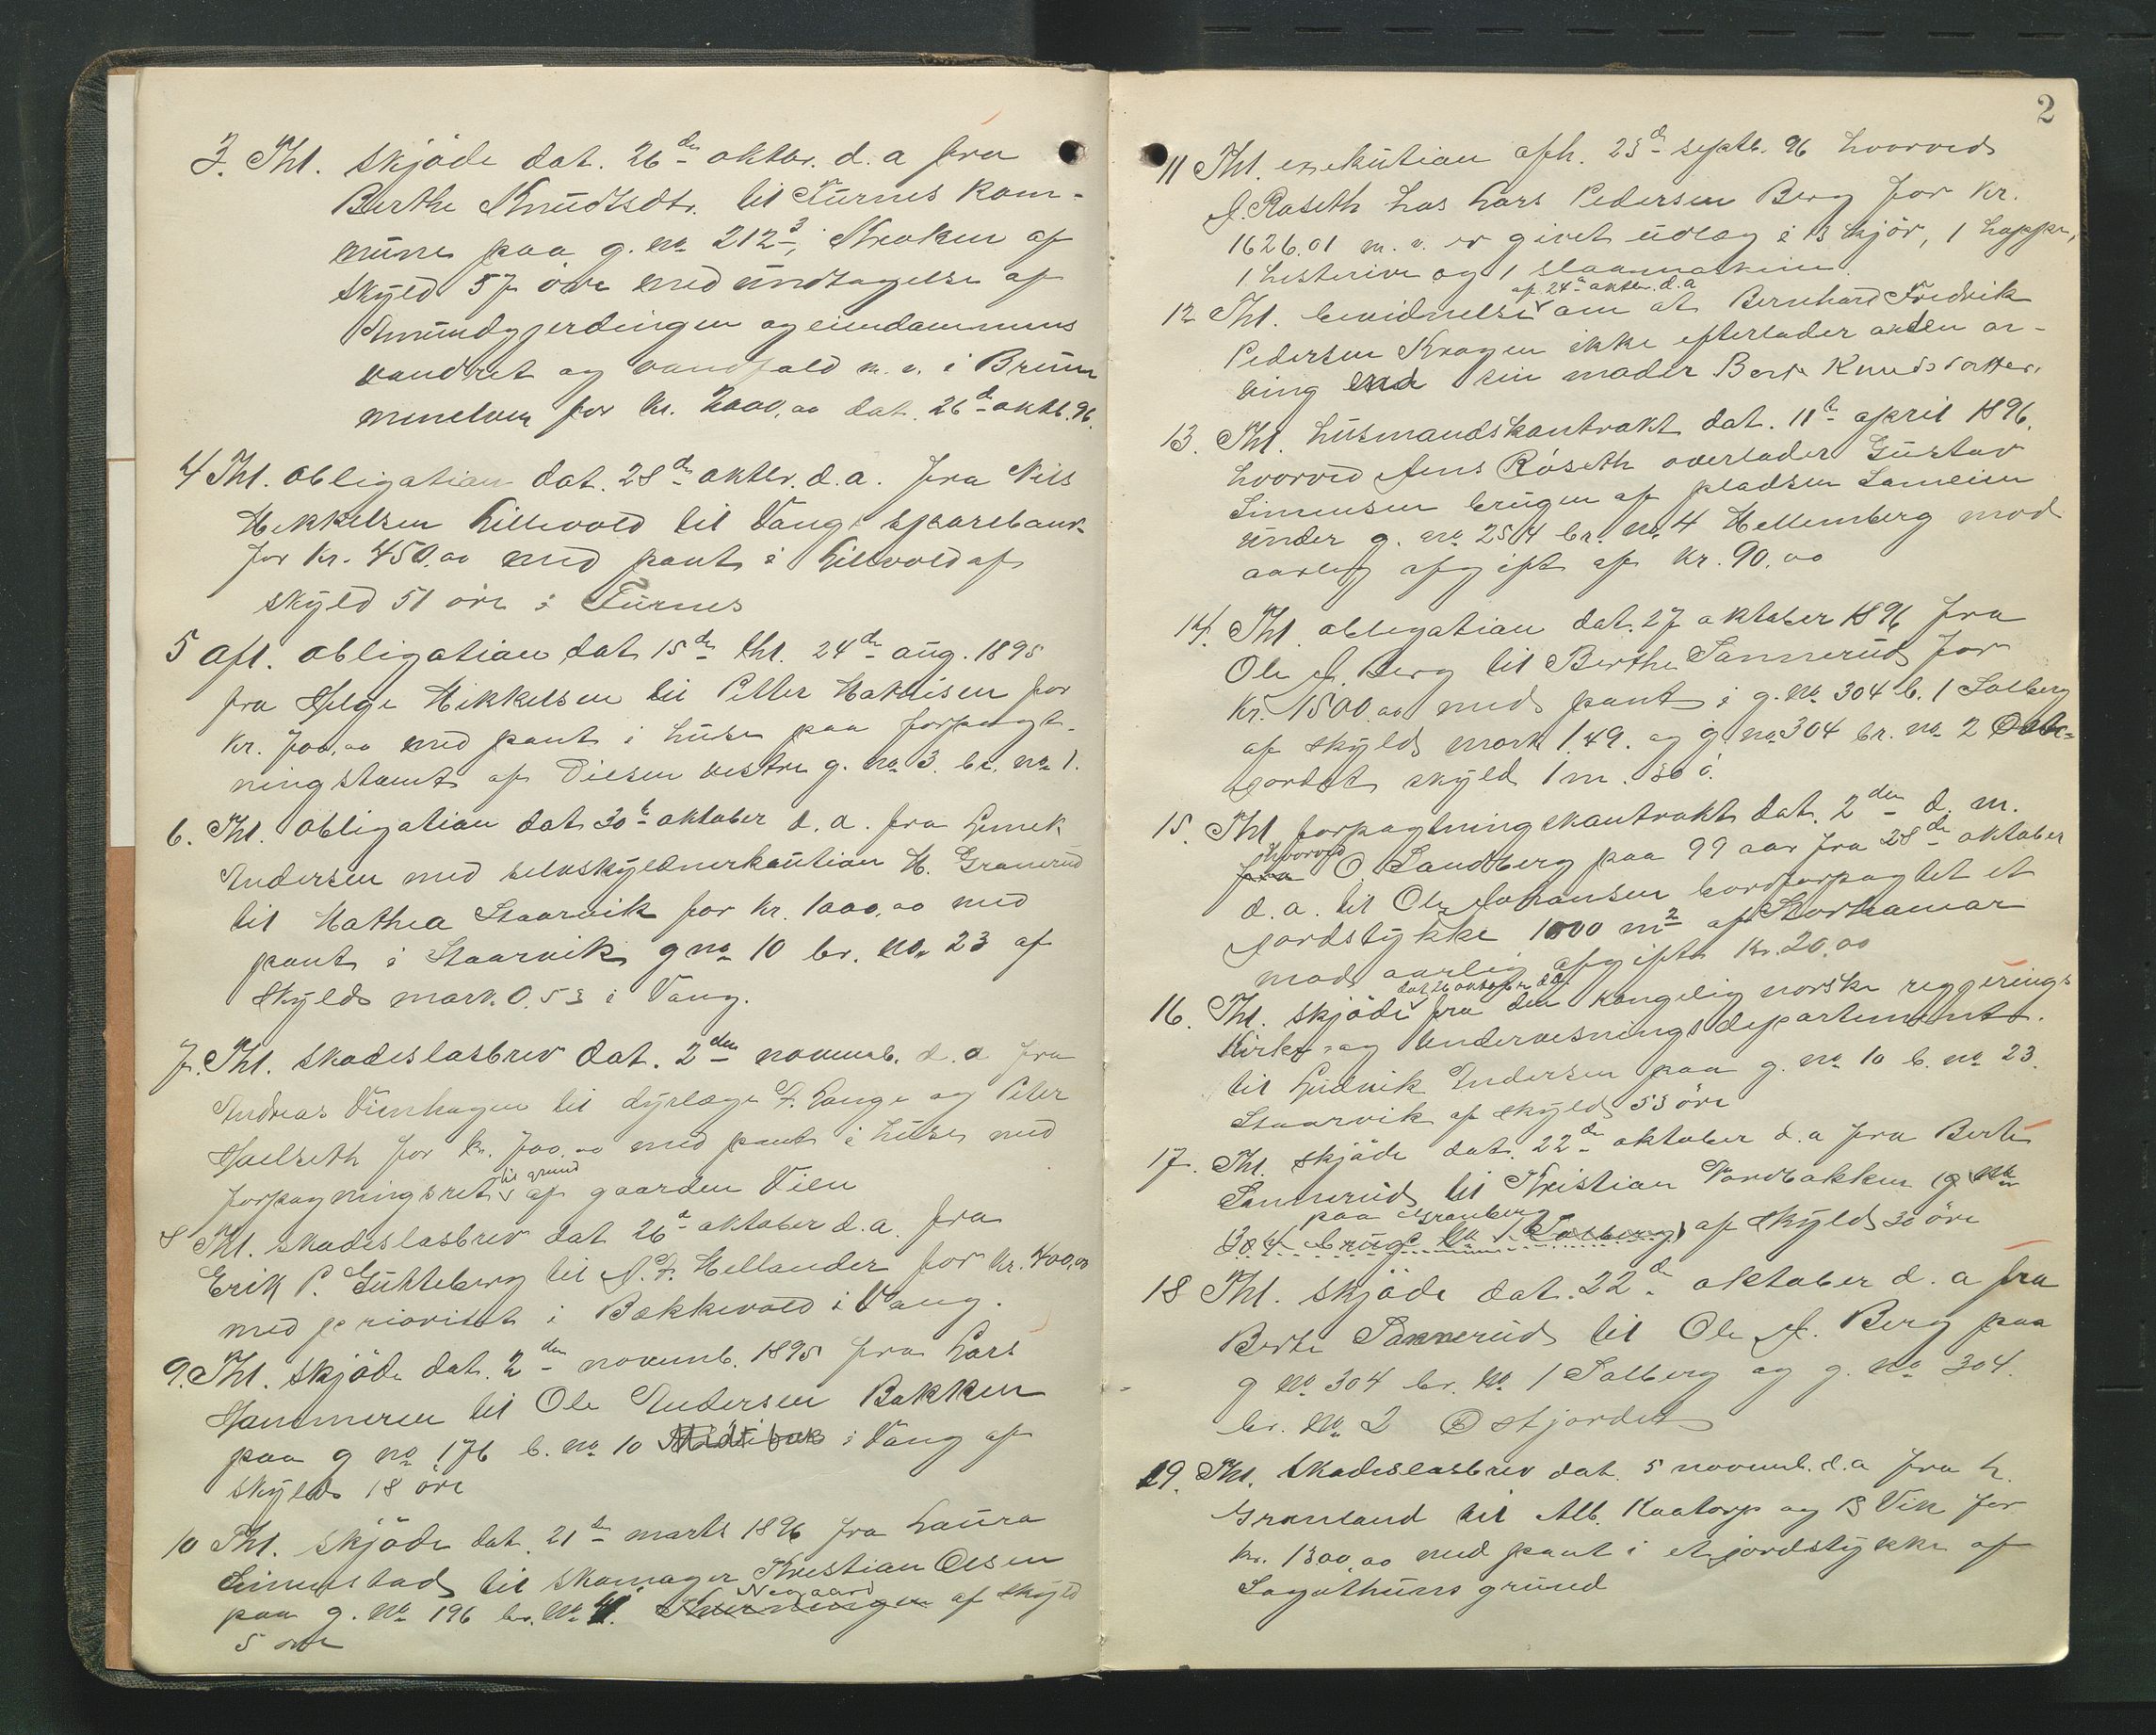 3. Thl. skjöde dat. 26de oktbr. d.a fra
Berthe Knudtsdtr. til Furnes kom-
mune paa g. no 212 3, Kroken af
skyld 57 öre med undtagelse af
Amundgjerdingen og eiendommens
vandret og vandfald m.v. i Brum
menelven for kr. 2000,00 dat. 26de oktb. 96.
4 Thl. obligation dat. 28de oktbr. d.a. fra Nils
Mikkelsen Lillevold til Vangs sparebank
for kr. 450.00 med pant i Lillevold af
skyld 51 öre i Furnes
5 Afl. obligation dat 15de thl. 24de aug. 1895
fra Helge Mikkelsen til Petter Mathisen for
kr. 700,00 med pant i huse paa forpagt-
ningstomt af Disen vestre g. no 3. br. no 1.
6. Thl. obligation dat 30te oktober d.a. fra
Andersen med selvskyldnerkaution M. Granerud
til Mathea Staarvik for kr. 1000.00 med
pant i Staarvik g no 10 br. no. 23 af
skyld mark. 0.53 i Vang.
7. Thl. skadeslösbrev dat. 2den novemb. d.a fra
Andreas Vienhagen til dyrlæge F. Lange og Peter
Hoelseth for kr. 700.00 med pant i huse med
til grund
forpagningsret af gaarden Vien
8 Thl. skadeslosbrev dat 26de oktober d.a. fra
Erik P. Gukteberg til N. F. Mellander for kr. 400,00
med prioritet i Bækkevold i Vang.
9. Thl. skjöde dat. 2den novemb. 1895 fra Lars
Hammeren til Ole Andersen Bakken
paa g no 176 b. no 10 i Vang af
skyld 18 öre
10 Thl. skjöde dat. 21de marts 1896 fra Laura
Simenstad til skomager Kristian Olsen
Nygaard
paa g. no 196 br. no 41. af skyld
5 öre
2
11 Thl. exekution afh. 23de septb. 96 hvorved
J. Röseth hos Lars Pedersen Berg for kr.
1626.01 m.v. er givet udlæg i 13 kjör, 1 hoppe,
1 hesterive og 1 slaamaskine.
af 24de oktbr. d.a
12 Thl. bevidnelse om at Bernhard Fredrik
Pedersen Krogen ikke efterlader anden ar-
ving end sin moder Berte Knudsdatter.
13. Thl. husmandskontrakt dat. 11te april 1896.
hvorved Jens Röseth overlader Gustav
Simensen brugen af pladsen Lameien
under g. no 254 br. no 4 Mellemberg mod
aarlig afgift af kr. 90.00
14. Thl. obligation dat. 27 oktober 1896 fra
Ole J. Berg til Berthe Sannerud for
kr. 1500.00 med pant i g. no 304 b. 1 Solberg
af skyld mark 1.49. og g. no 304 br. no 2 Öst-
jordet skyld 1 m. 30 ö.
15. Thl. forpagtningskontrakt dat. 2den d.m.
hvorved
fra O. Sandberg paa 99 aar fra 28de oktober
d.a. til Ole Johansen bortforpagtet et
jordstykke 1000 m2 af Storhamar
mod aarlig afgift kr. 20.00
dat 26 oktober d.a.
16. Thl. skjöde fra den kongelig norske reggerings
kirke- og undervisningsdepartement.
til Ludvik Andersen paa g. no 10 b. no 23.
Staarvik af skyld 53 öre
17. Thl. skjöde dat. 22de oktober d.a fra Berte
Sannerud til Kristian Nordbakken g no
paa Granberg
304 brugs no 1 Solberg af skyld 30 öre
18 Thl. skjöde dat. 22de oktober d.a fra
Berte Sannerud til Ole J. Berg paa
g no 304 br. no 1 Solberg og g. no 304.
br. no 2 Östjordet
19. Thl. skadeslosbrev dat. 5 novemb. d.a fra h.
Grønland til Alb. Kaatorp og B Vik for
kr. 1300.00 med pant i et jordstykke af
Sagathuns grund